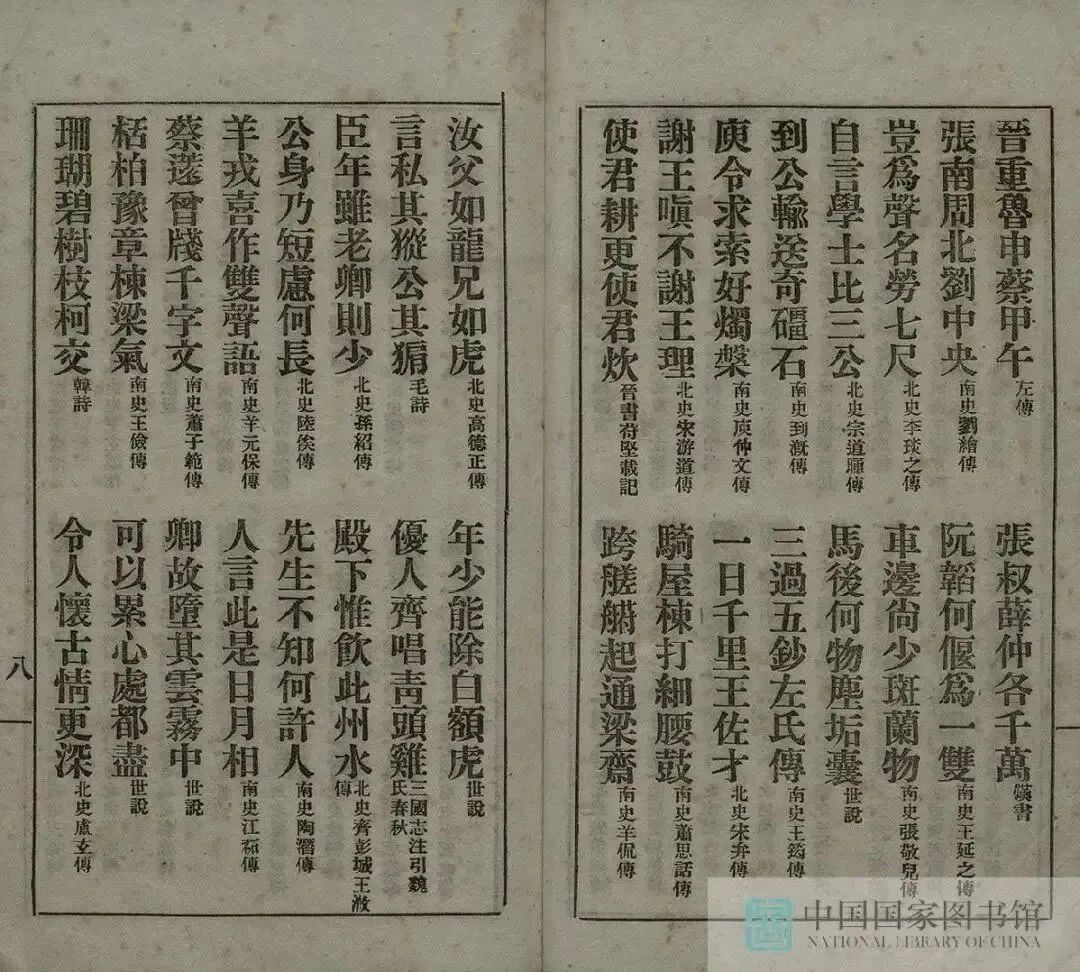 晉重魯申蔡甲午左傳
張叔薛仲各千萬漢書
張南周北劉中央南史劉繪傳
阮韜何偃爲一雙南史王延之傳
豈爲聲名勞七尺北史李琰之傳
車邊尙少斑蘭物南史張敬兒傳
自言學士比三公北史宗道暉傳
馬後何物塵垢囊世說
到公輸送奇礓石南史到漑傳
三過五鈔左氏傳南史王筠傳
庾令求索好燭槃南史庾仲文傳
一日千里王佐才北史宋弁傳
謝王嗔不謝王理北史宋游道傳
騎屋棟打細腰鼓南史蕭思話傳
使君耕更使君炊晉書苻堅載記
跨艖䑰起通梁齋南史羊侃傳
汝父如龍兄如虎北史高德正傳
年少能除白額虎世說
言私其豵公其豜毛詩
優人齊唱靑頭雞三國志注引魏氏春秋
臣年雖老卿則少北史孫紹傳
殿下惟飮此州水北史齊彭城王浟傳
公身乃短慮何長北史陸俟傳
先生不知何許人南史陶潛傳
羊戎喜作雙聲語南史羊元保傳
人言此是日月相南史江祏傳
蔡薳曾牋千字文南史蕭子範傳
卿故墮其雲霧中世說
栝柏豫章棟梁氣南史王儉傳
可以累心處都盡世說
珊瑚碧樹枝柯交韓詩
令人懷古情更深北史盧玄傳
八
中国国家图书馆
NATIONAL LIBRARY OF CHINA